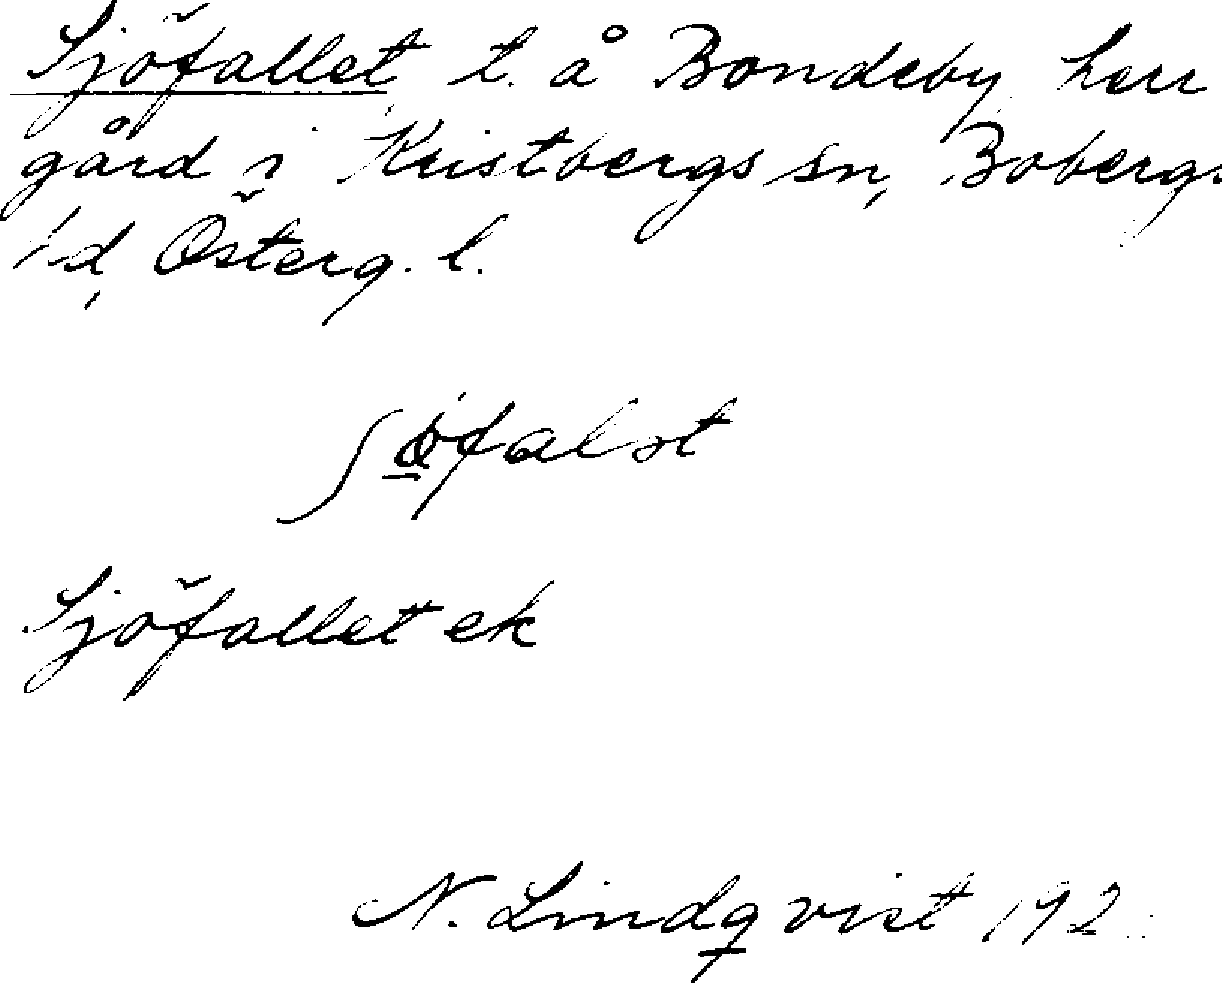 Sjöfallet, t. å Bondeby, herr
gård i Kristbergs sn, Bobergs
hd, Österg. l.
ʃö̱falst
Sjöfallet ek
N. Lindqvist 192